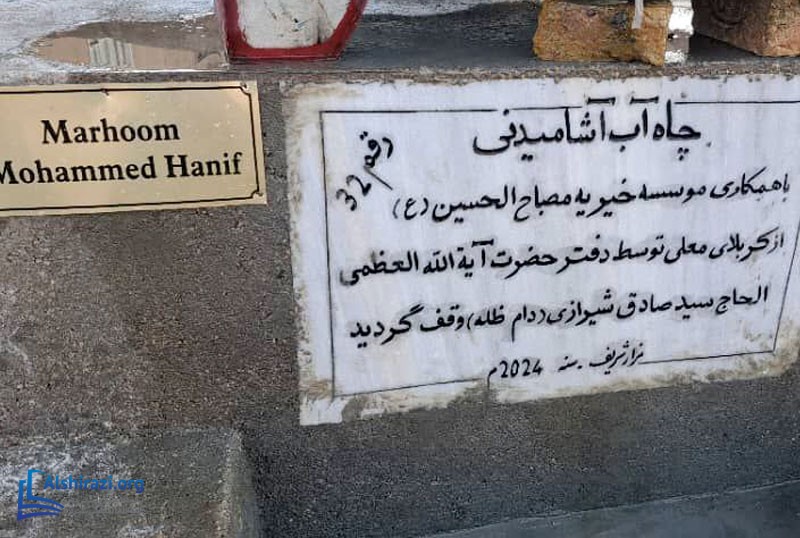 Marhoom
Mohammed Hanif
چاه آب آشامیدنی
رقم 32
با همکاری موسسه خیریه مصباح الحسین (ع)
از کربلای معلی توسط دفتر حضرت آیة الله العظمی
الحاج سید صادق شیرازی (دام ظله) وقف گردید
مزار شریف - سنه 2024م
Alshirazi.org